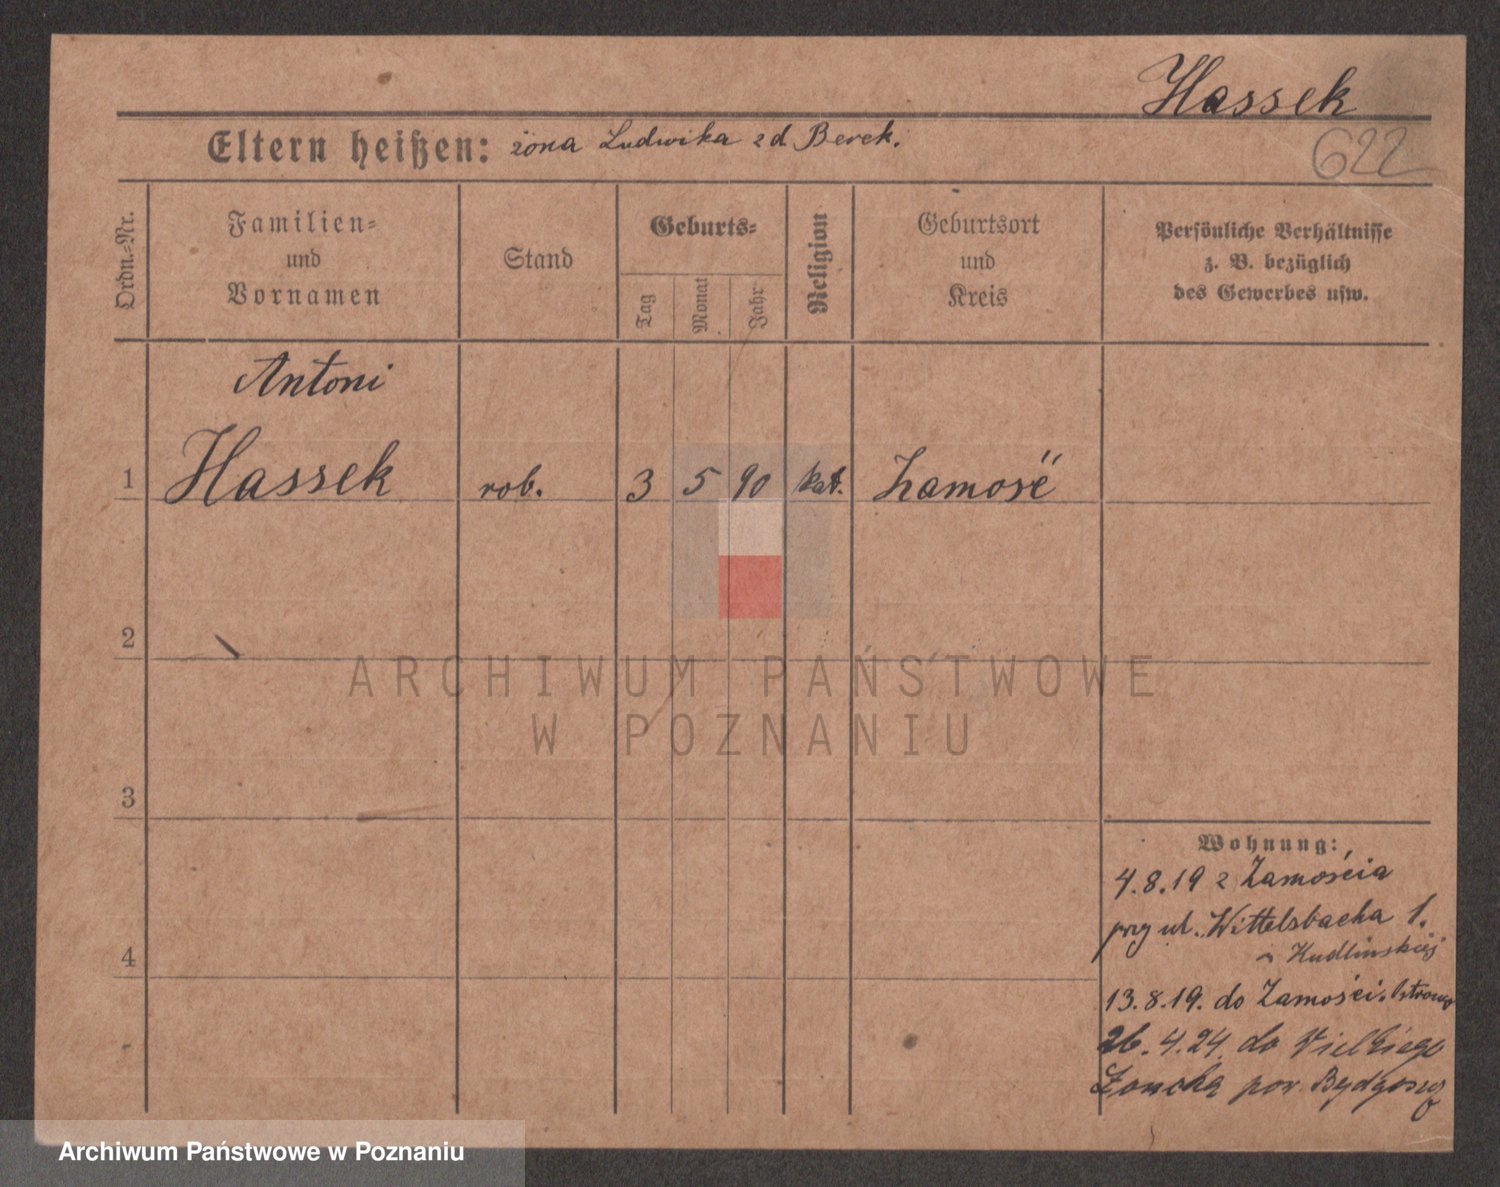 Hassek
622
Eltern heißen: żona Ludwika zd Berek.
Ordn.-Nr.
Familien-
und
Vornamen
Stand
Geburts-
Tag
Monat
Jahr
Religion
Geburtsort
und
Kreis
Persönliche Verhältnisse
z. B. bezüglich
des Gewerbes usw.
Antoni
1 Hassek rob. 3 5 90 kat. Zamość
2
3
4
Wohnung:
4.8.19 z Zamościa
przy ul. Wittelsbacha 1.
Kudlinskiej
13.8.19. do Zamości.
26.4.24 do Vielkiego
pow. Bydgoszcz
ARCHIWUM PAŃSTWOWE
W POZNANIU
Archiwum Państwowe w Poznaniu